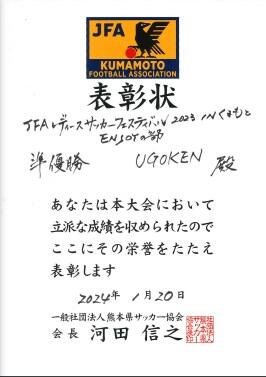 JFA
KUMAMOTO
FOOTBALL ASSOCIATION
表彰状
JFAレディースサッカーフェスティバル2023 INくまもと
ENJOYの部
準優勝 UGOKEN 殿
あなたは本大会において
立派な成績を収められたので
ここにその栄誉をたたえ
表彰します
2024年 1月20日
一般社団法人熊本県サッカー協会
会長 河田信之